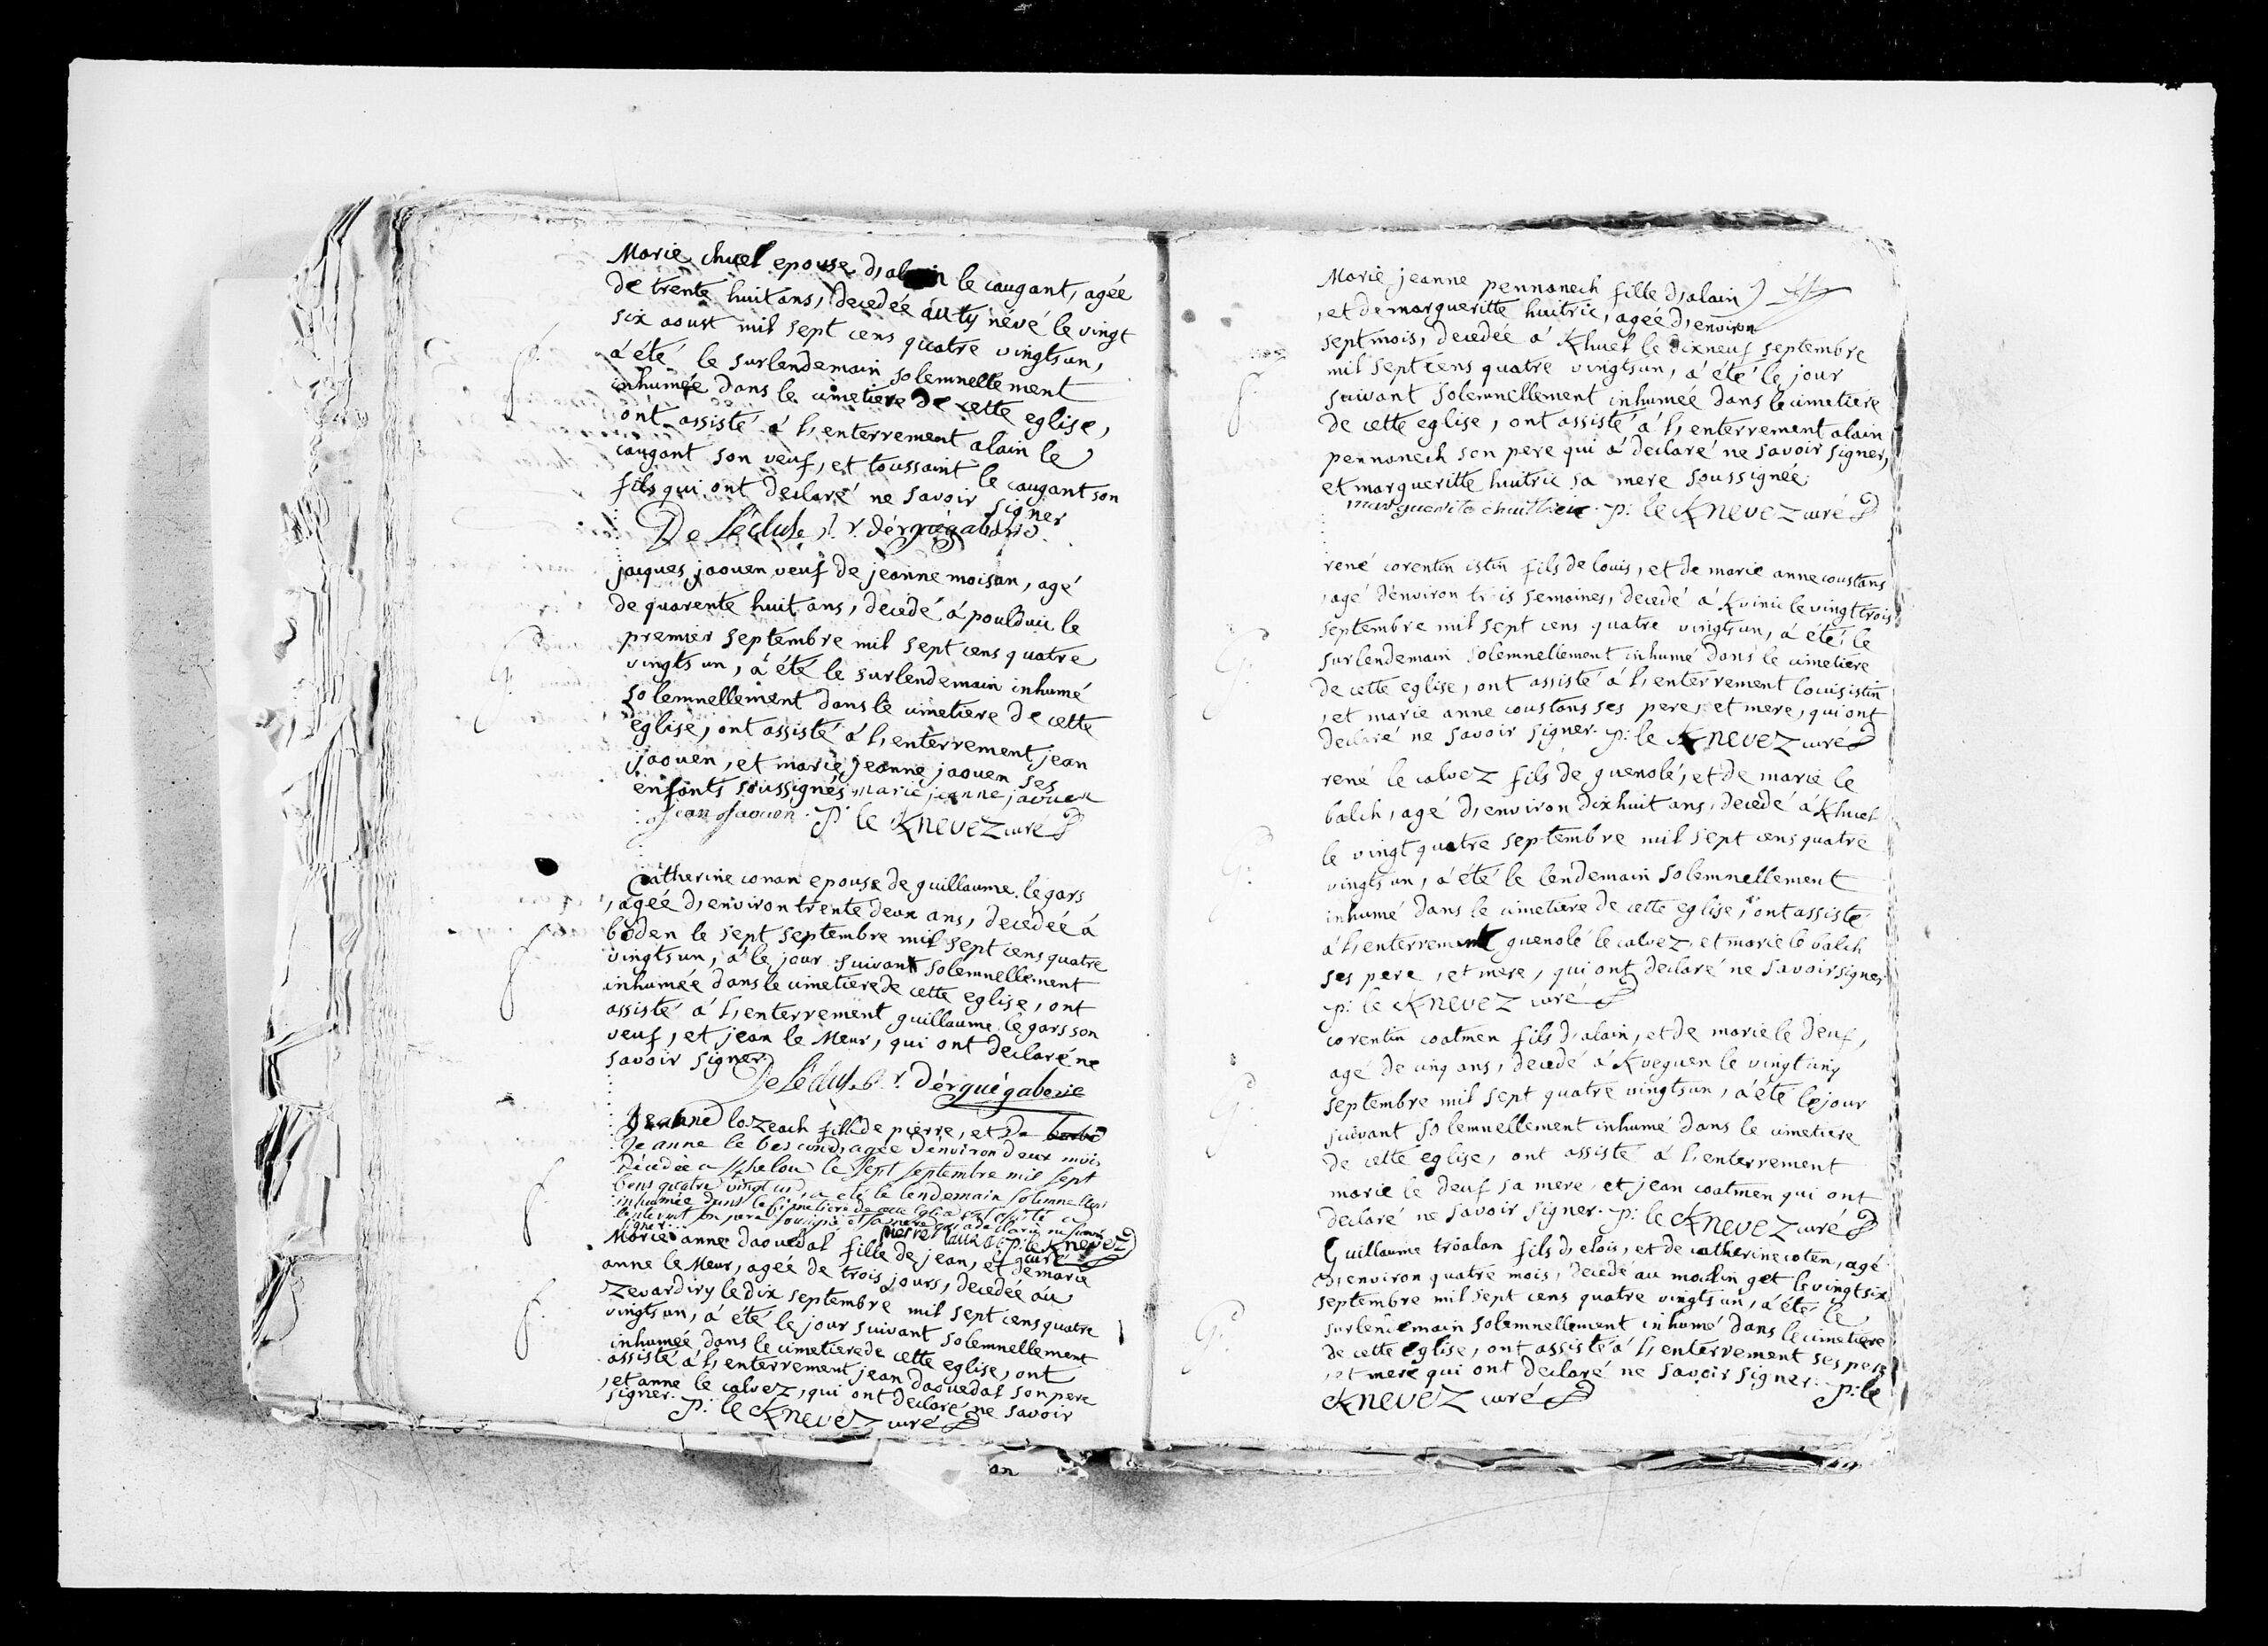 Marie chuel epouse d'alain le caugant, agée
de trente huit ans, decedée au ty névé le vingt
six aoust mil sept cens quatre vingts un,
a été le surlendemain solemnellement
inhumée dans le cimetiere de cette eglise,
ont assisté a l'enterrement alain le
caugant son veuf, et toussaint le caugant son
fils qui ont declaré ne savoir signer
De Lécluse r. dérguégaberie
f.
jacques jaouen veuf de jeanne moisan, agé
de quarente huit ans, decedé a poulduic le
premier septembre mil sept cens quatre
vingts un, a été le surlendemain inhumé
solemnellement dans le cimetiere de cette
eglise, ont assisté a l'enterrement jean
jaouen, et marie jeanne jaouen ses
enfants soussignés marie jeanne jaouen
jean jaouen. p: le Knevez curé
G.
Catherine conan epouse de guillaume le gars
, agée d'environ trente deux ans, decedée a
boden le sept septembre mil sept cens quatre
vingts un, a le jour suivant solemnellement
inhumée dans le cimetiere de cette eglise, ont
assisté a l'enterrement guillaume le gars son
veuf, et jean le Meur, qui ont declaré ne
savoir signer.
De Lécluse r. dérguégaberie
f.
Jeanne lozeach fille de pierre, et De barbe
Jeanne le bescond, agée d'environ deux mois
Décédée a Khelou le sept septembre mil sept
Cens quatre vingt un, a été le lendemain solemnellem^t
inhumée dans le Cimetiere de cette Eglise ont assisté a
son pere soussigné et sa mere qui a declaré ne savoir
signer. pierre p: le Knevez
curé
f.
Marie anne daouedal fille de jean, et de marie
anne le Meur, agée de trois jours, decedée au
Zevardiry le dix septembre mil sept cens quatre
vingts un, a été le jour suivant solemnellement
inhumée dans le cimetiere de cette eglise, ont
assisté a l'enterrement jean daouedal son pere
, et anne le calvez, qui ont declaré ne savoir
signer. p: le Knevez curé
f.
Marie jeanne pennanech fille d'alain
, et de margueritte huitric, agée d'environ
sept mois, decedée a Khuel le dixneuf septembre
mil sept cens quatre vingts un, a été le jour
suivant solemnellement inhumée dans le cimetiere
de cette eglise, ont assisté a l'enterrement alain
pennanech son pere qui a declaré ne savoir signer,
et margueritte huitric sa mere soussignée.
marguerite chuitric. p: le Knevez curé
f.
rené corentin istin fils de louis, et de marie anne coustans
, agé d'environ trois semaines, decedé a Kvinic le vingt trois
septembre mil sept cens quatre vingts un, a été le
surlendemain solemnellement inhumé dans le cimetiere
de cette eglise, ont assisté a l'enterrement louis istin
, et marie anne coustans ses pere, et mere, qui ont
declaré ne savoir signer. p: le Knevez curé
G.
rené le calvez fils de guenolé, et de marie le
balch, agé d'environ dix huit ans, decedé a Khuel
le vingt quatre septembre mil sept cens quatre
vingts un, a été le lendemain solemnellement
inhumé dans le cimetiere de cette eglise, ont assisté
a l'enterrement guenolé le calvez, et marie le balch
ses pere, et mere, qui ont declaré ne savoir signer
p: le Knevez curé
G.
corentin coatmen fils d'alain, et de marie le deuf,
agé de cinq ans, decedé a Kveguen le vingt cinq
septembre mil sept quatre vingts un, a été le jour
suivant solemnellement inhumé dans le cimetiere
de cette eglise, ont assisté a l'enterrement
marie le deuf sa mere, et jean coatmen qui ont
declaré ne savoir signer. p: le Knevez curé
G.
Guillaume troalan fils d'elois, et de catherine coten, agé
d'environ quatre mois, decedé au moulin get le vingt six
septembre mil sept cens quatre vingts un, a été le
surlendemain solemnellement inhumé dans le cimetiere
de cette eglise, ont assisté a l'enterrement ses pere
, et mere qui ont declaré ne savoir signer. p: le
Knevez curé
G.